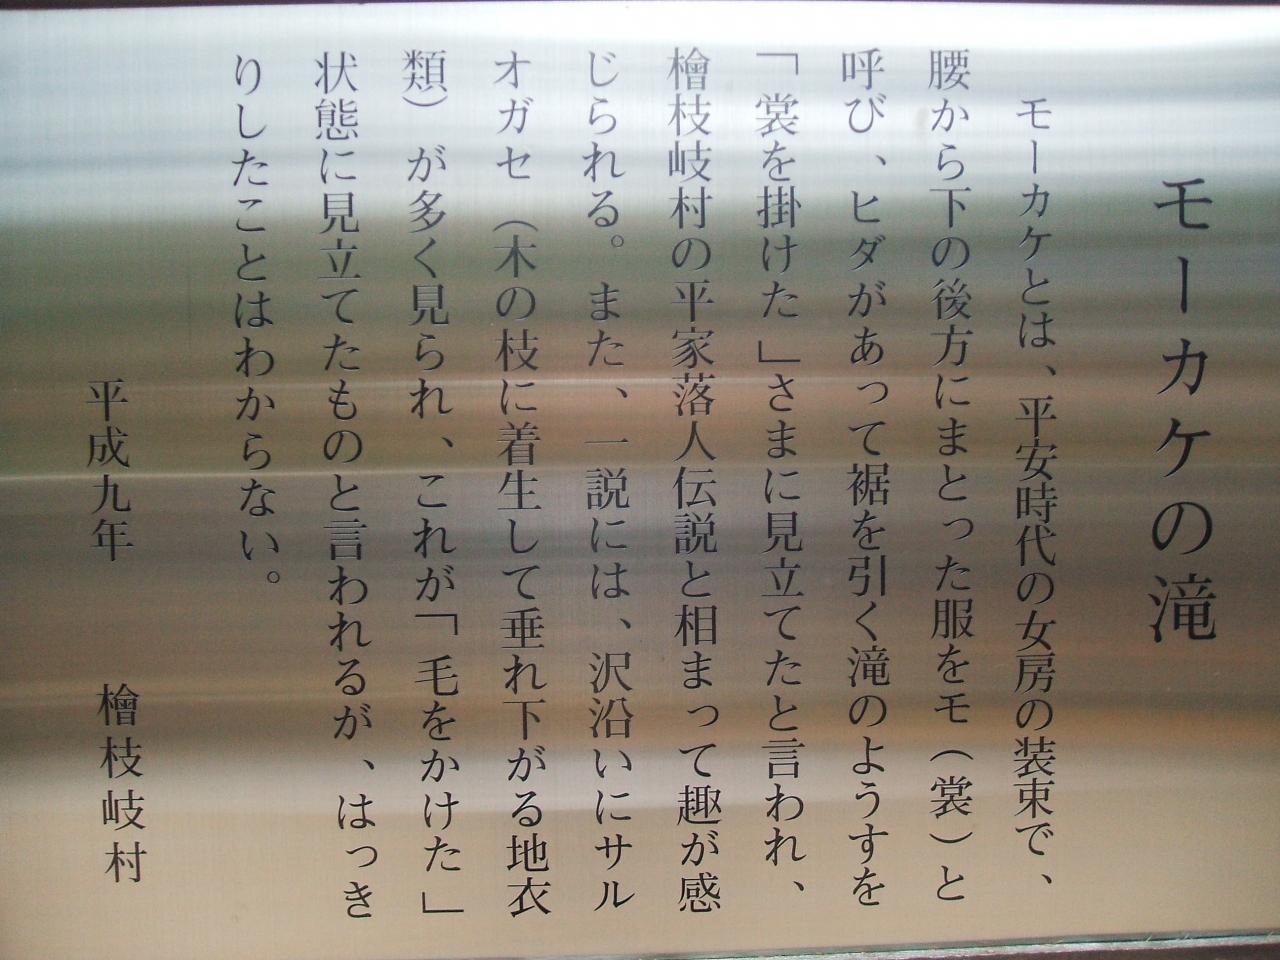 モーカケの滝
モーカケとは、平安時代の女房の装束で、
腰から下の後方にまとった服をモ（裳）と
呼び、ヒダがあって裾を引く滝のようすを
「裳を掛けた」さまに見立てたと言われ、
檜枝岐村の平家落人伝説と相まって趣が感
じられる。また、一説には、沢沿いにサル
オガセ（木の枝に着生して垂れ下がる地衣
類）が多く見られ、これが「毛をかけた」
状態に見立てたものと言われるが、はっき
りしたことはわからない。
平成九年　檜枝岐村